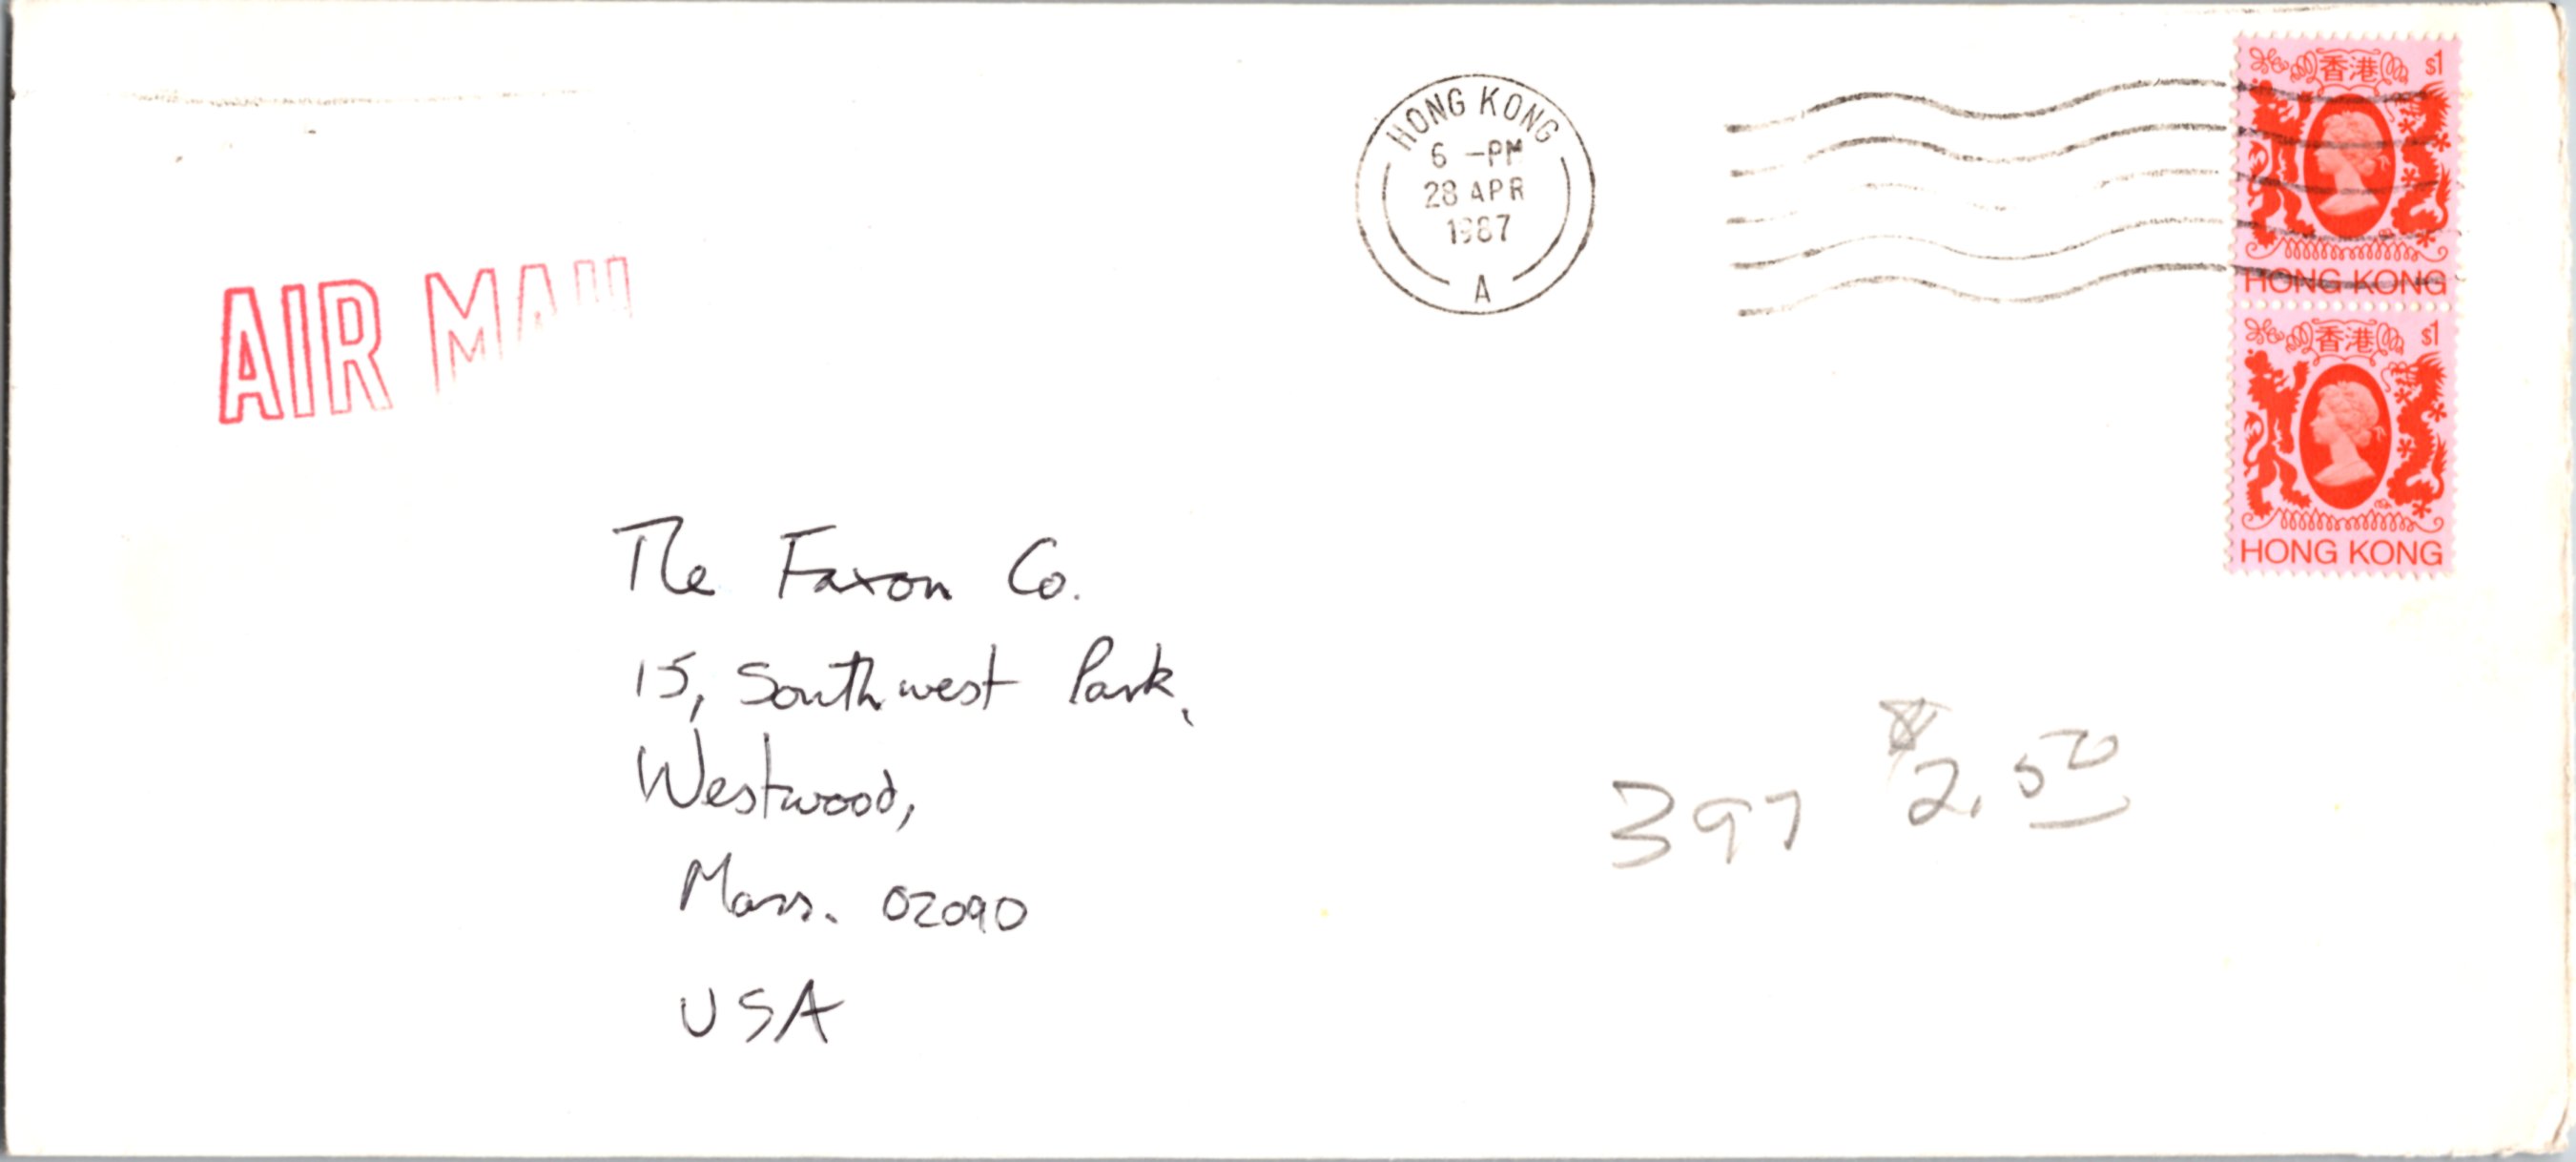 HONG KONG
6 -PM
28 APR
1987
A
香港 $1
HONG KONG
香港 $1
HONG KONG
AIR MAIL
The Faxon Co.
15, Southwest Park,
Westwood,
Mass. 02090
USA
397 $2.50